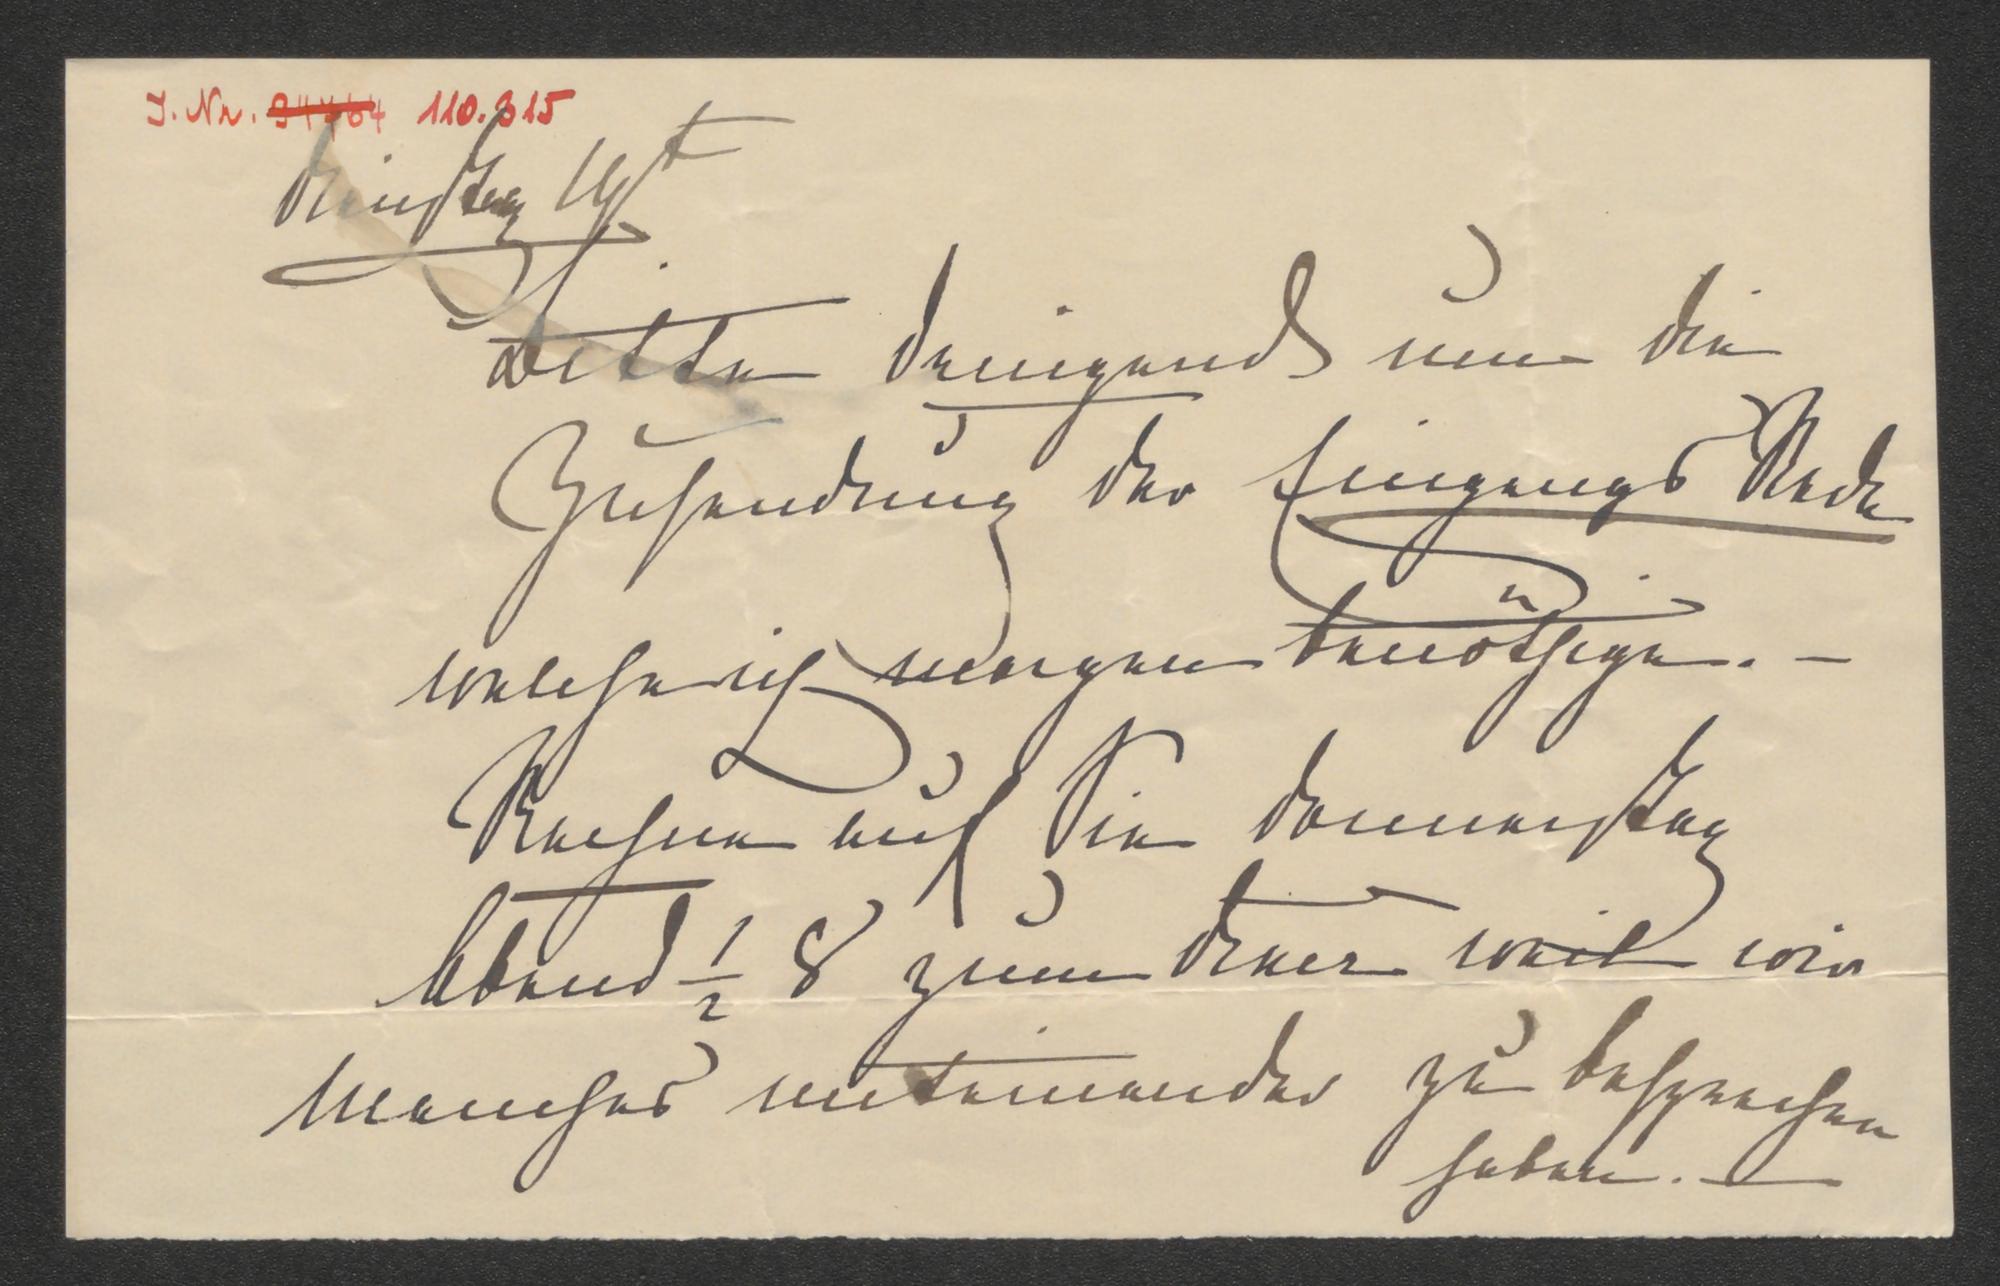 J. Nr. 110.315
Dienstag 14t
Bitte dringend um die
Zusendung der Eingangs Rede
welche ich morgen benöthige. –
Rechne auf Sie Donnerstag
Abend ½ 8 zum diner weil wir
Manches miteinander zu besprechen
haben. –